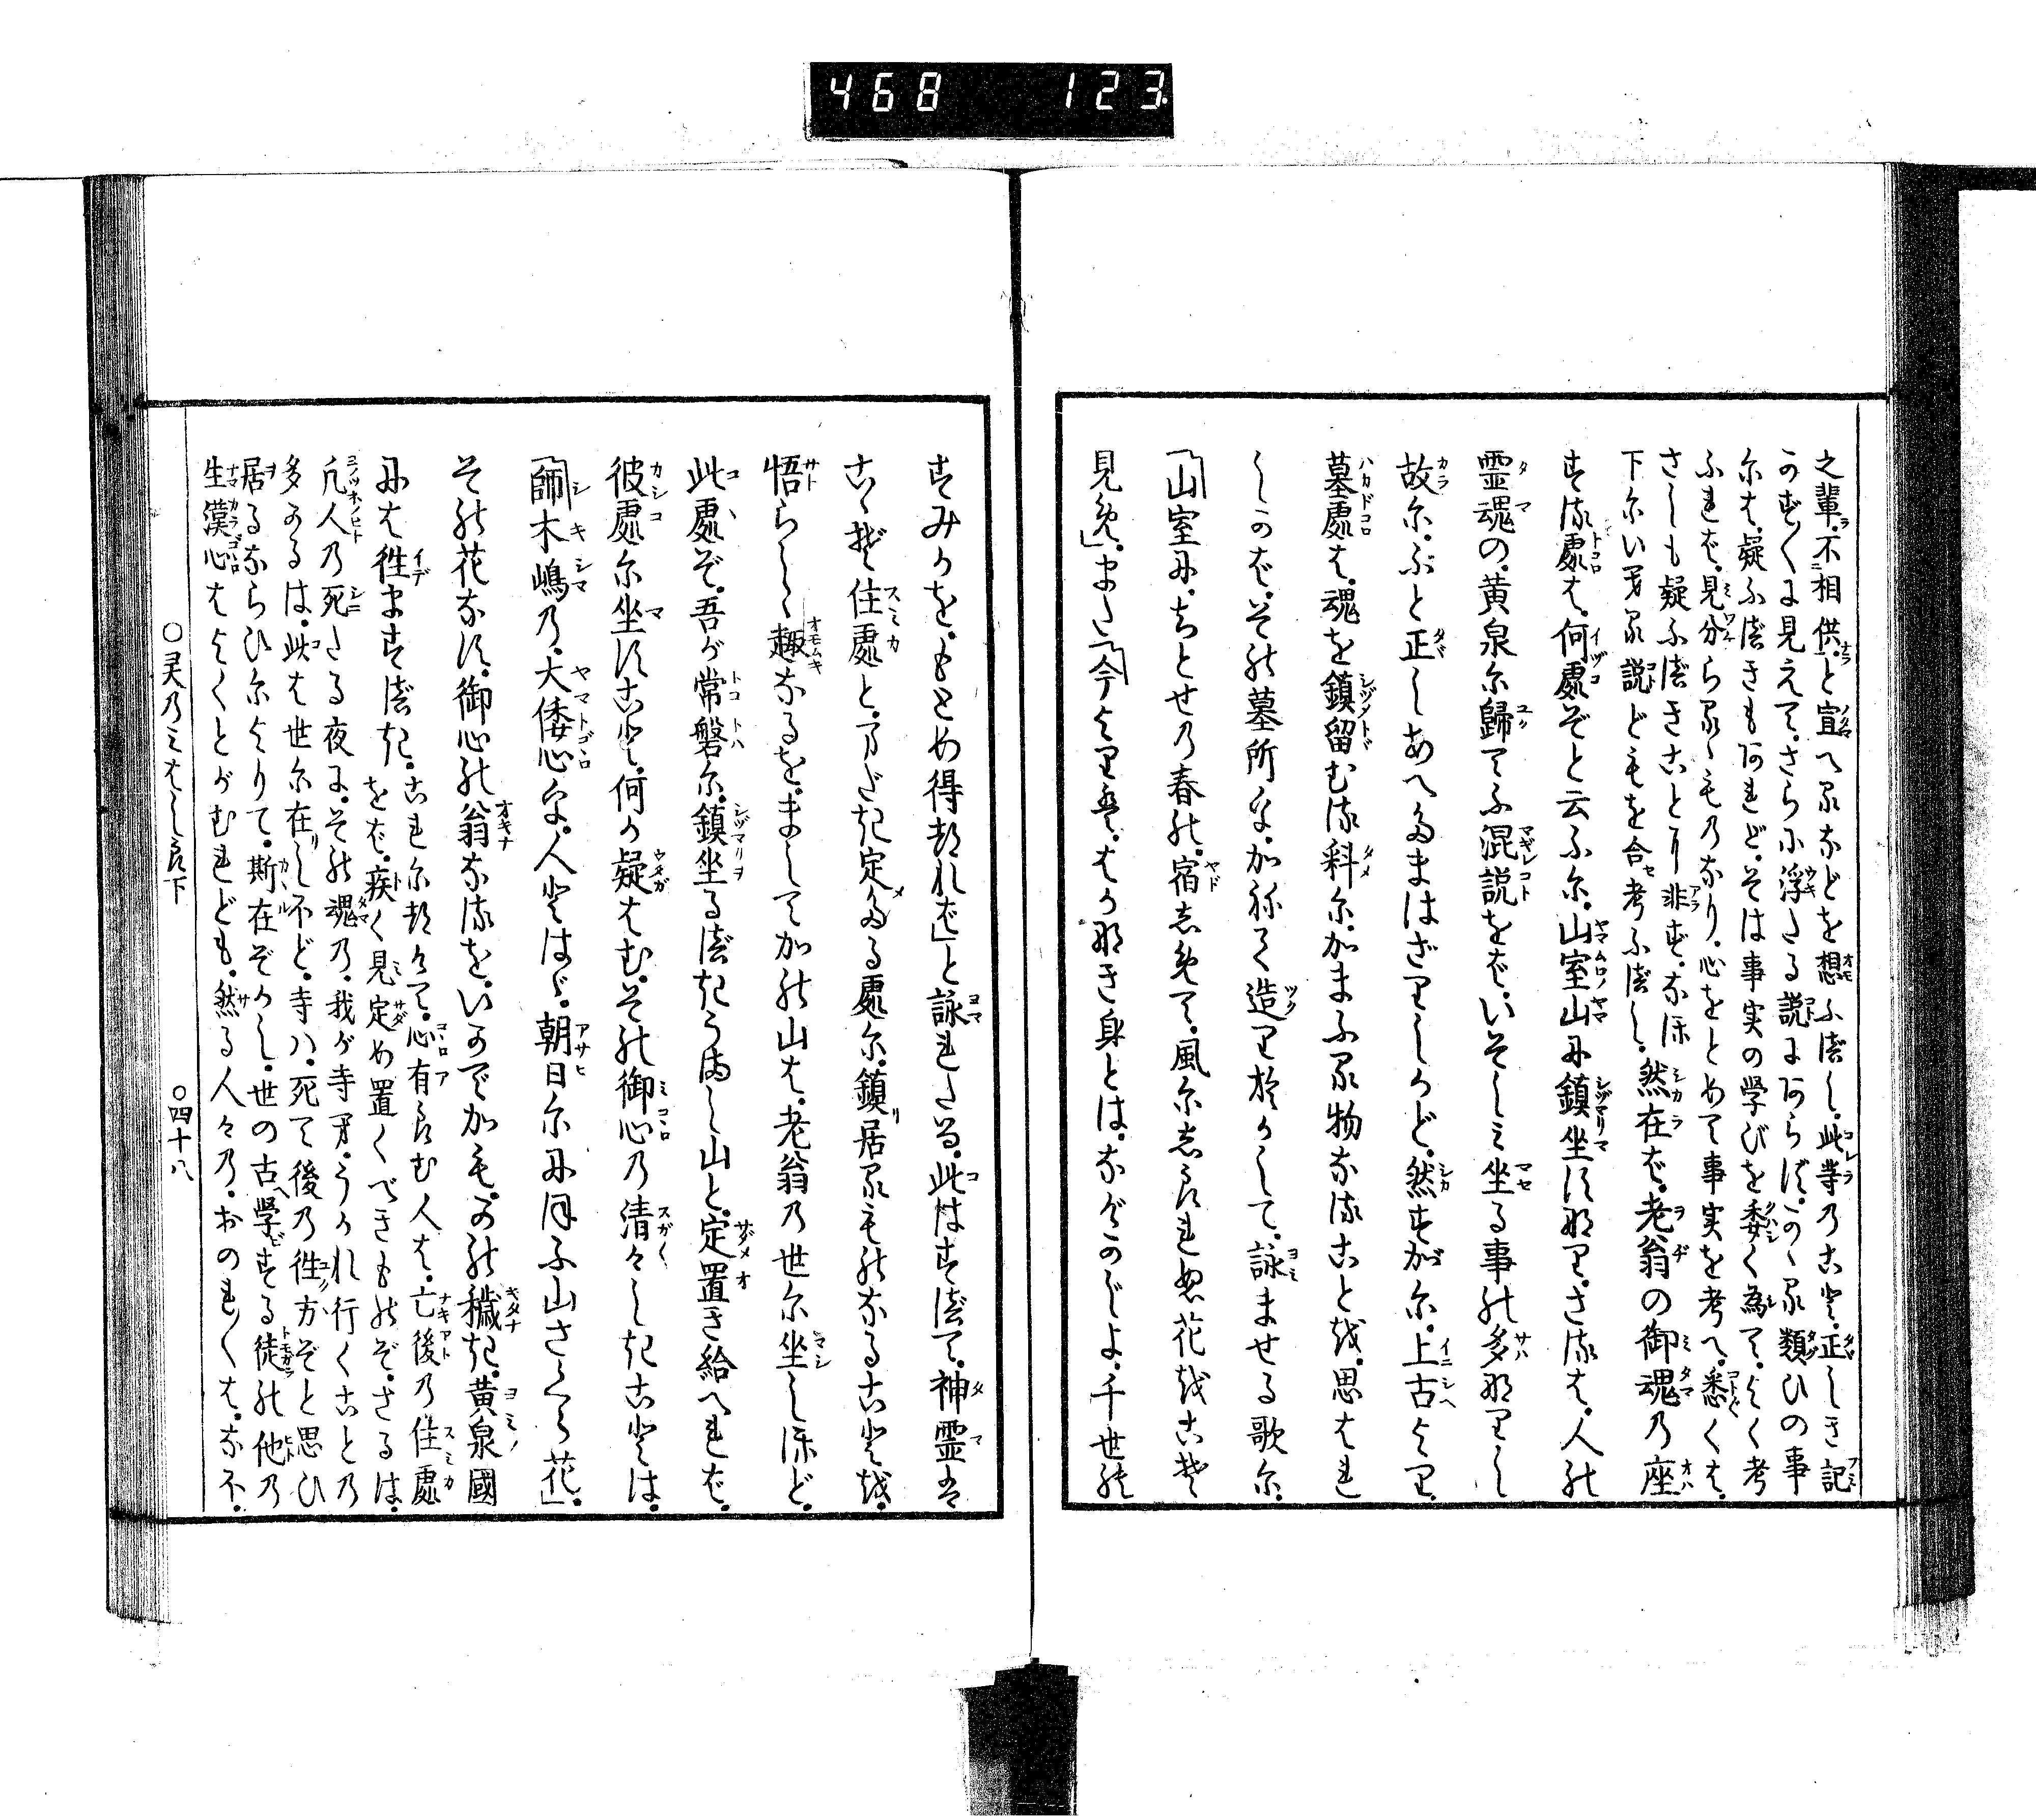 468 123
之輩不相供と宜へるなどを想ふべし。此等のこと。正しき記
のすぢに見えて。さらに浮たる説にあらず。かゝる類ひの事
には。疑ふべきもあれど。そは事実の学びを委く為て。よく考
ふれば。見分らるゝものなり。心をとめて事実を考へ。悉くは。
さしも疑ふべきことに非ず。なほ
下にいへる説どもを合セ考ふべし。然在ば。老翁の御魂の座
する處は。何處ぞと云ふに。山室山に鎮坐すなり。さるは。人の
霊魂の。黄泉に歸てふ混説をば。いそしみ坐る事の多なりし
故に。ふと正しあへたまはざりしかど。然すがに。上古より。
墓處は。魂を鎮留むる料に。かまふる物なることを。思はれ
しかば。その墓所を。かねて造りおかして。詠ませる歌に。
「山室に。ちとせの春の。宿しめて。風にしられぬ花をこそ
見め」。また「今よりは。はかなき身とは。なげかじよ。千世の
すみかを。もとめ得つれば」と詠れたる。此はすべて。神霊は
こゝぞ住處と。まだき定たる處に。鎮居るものなることを。
悟らしゝ趣なるを。ましてかの山は。老翁の世に坐しほど。
此處ぞ。吾が常磐に。鎮坐るべきうまし山と。定置き給へれば。
彼處に坐すこと。何か疑はむ。その御心の清々しきことは。
「師木嶋の。大倭心を。人とはゞ。朝日ににほふ山さくら花」。
その花なす。御心の翁なるを。いかでかも。かの穢き。黄泉國
には往ますべき。
これにつけて。心有らむ人は。亡後の住處
をば。疾く見定め置くべきものぞ。さるは。
凡人の死たる夜に。その魂の。我が寺へ。うかれ行くことの
多かるは。此は世に在しほど。寺ハ。死て後の往方ぞと思ひ
居るならひによりて。斯在ぞかし。世の古学する徒の他の
生漢心はよくとがむれども。然る人々の。おのれ〱は。なほ。
○霊乃みはしら下
○四十八